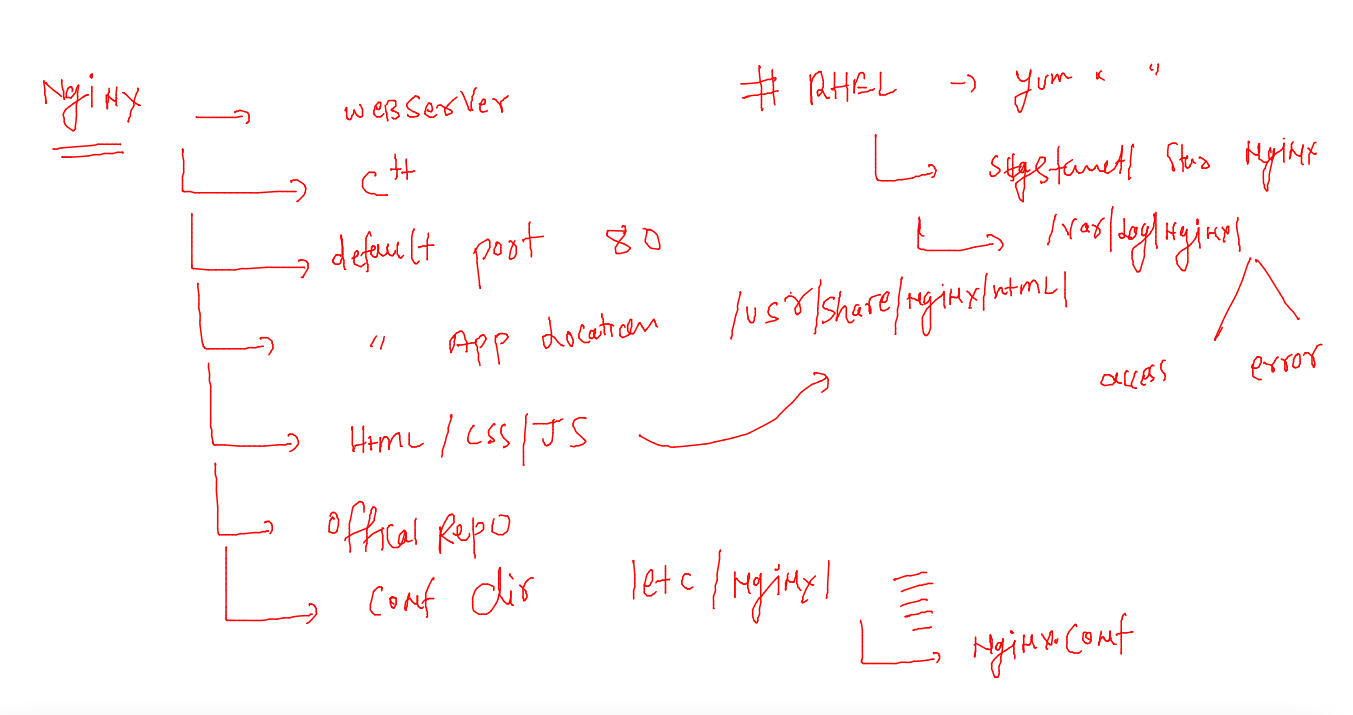 Nginx → webserver
C++
default port 80
" App Location /usr/share/nginx/html/
Html / CSS/JS
Offical Repo
Conf dir /etc/nginx/
nginx.conf
# RHEL → yum x "
nginx
/var/log/nginx/
access error